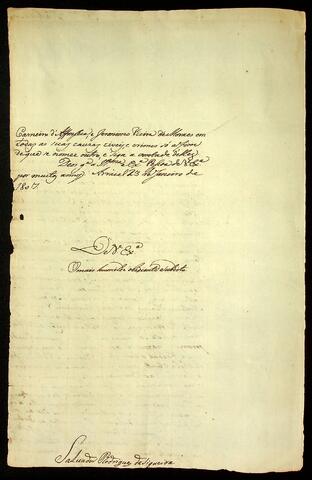 Carneiro de e Genovevo Vieira de Moraes em
todas as suas cauzas civeis, e crimes só a fim
de que se nomee outro, e siga a vontade delles
Deos g.e a Ill.ma e Ex.ma Pessoa de V. Ex.a
por muitos annos. Arraial 23 de Janeiro de
1807
De V. Ex.a
O mais humilde obediente subdito
Salvador Rodrigues de Siqueira